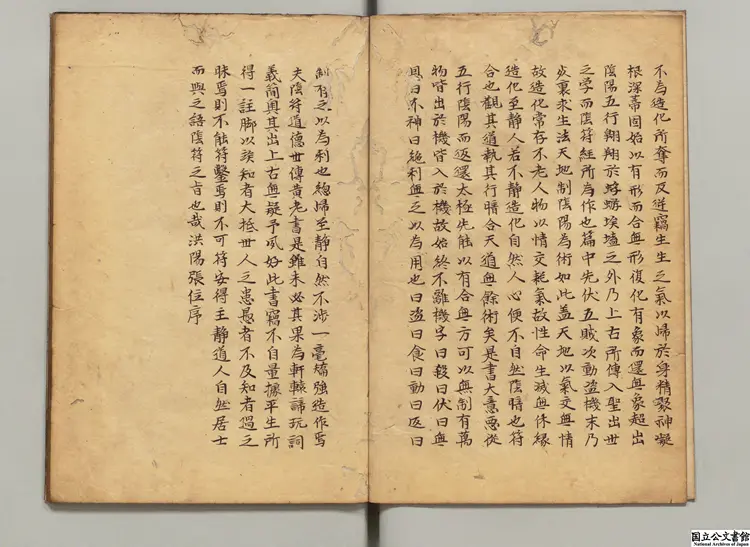 不為造化所奪而及逆竊生生之氣以歸於身精聚神凝
根深蒂固始以有形而合無形復化有象而還無象超出
陰陽五行翱翔於蜉蝣埃壒之外乃上古所傳入聖出世
之學而陰符經所為作也篇中先伏五賊次動盗機末乃
炁裏求生法天地制陰陽為術如此蓋天地以氣交無情
故造化常存不老人物以情交耗氣故性命生滅無休緣
造化至靜人若不靜造化自然人心便不自然陰暗也符
合也觀其道執其行暗合天道無餘術矣是書大意悉從
五行陰陽而返還太極先能以有合無方可以無制有萬
物皆出於機皆入於機故始終不離機字曰殺曰伏曰無
具曰不神曰絶利無之以為用也曰盗曰食曰動曰返曰
制有之以為利也總歸至靜自然不涉一毫矯強造作焉
夫陰符道德世傳黄老書是雖未必其果為軒轅諦玩詞
義簡奥其出上古無疑予夙好此書竊不自量據平生所
得一註脚以詼知者大抵世人之患愚者不及知者過之
昧焉則不能符鑿焉則不可符安得主靜道人自然居士
而與之語陰符之旨也哉洪陽張位序
国立公文書館
National Archives of Japan